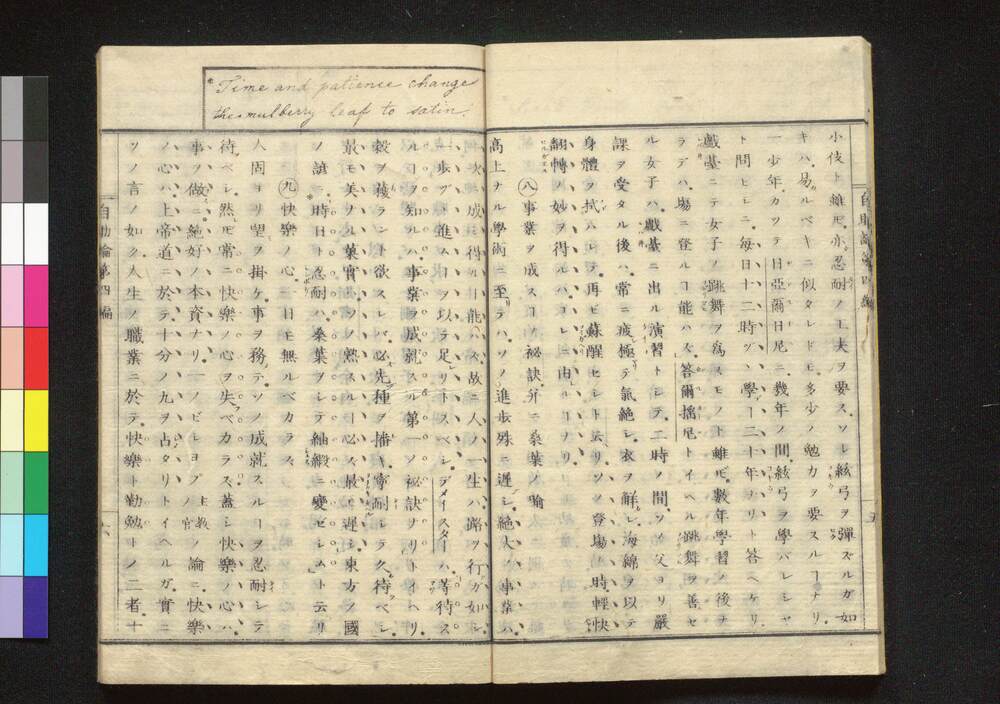 小伎ト雖𪜈亦忍耐ノ工夫ヲ要スソレ絃弓ヲ彈ズルガ如
キハ易ルベキニ似タレドモ多少ノ勉力ヲ要スルヿナリ
一少年カツテ日亞爾日尼ニ幾年ノ間絃弓ヲ學バレシヤ
ト問ヒシニ毎日十二時ヅヽ學ブヿ二十年ナリト答ヘケリ
戱臺ニテ女子ノ跳舞ヲ爲スモノト雖𪜈數年學習ノ後ナ
ラデハ場ニ登ルヿ能ハズ答爾搖尼トイヘル跳舞ヲ善セ
ル女子ハ戱臺ニ出ル演習トシテ二時ノ間ソノ父ヨリ嚴
課ヲ受タル後ハ常ニ疲極テ氣絶シ衣ヲ解レ海綿ヲ以テ
身體ヲ拭ハレテ再ビ蘇醒セシト云リソノ登場ノ時輕快
翻轉ノ妙ヲ得ルハコレニ由ルヿナリ
八 事業ヲ成スヿノ祕訣并ニ桑葉ノ喩
高上ナル學術ニ至リテハソノ進歩殊ニ遲シ絶大ノ事業ハ
Time and patience change
the mulberry leaf to satin.
自助論第四編
次ニ成シ得ルヿ能ハズ故ニ人ノ一生ハ路ヲ行ガ如シ
一歩ヅヽ進ムヲ以テ足レリトスベシデメイスターハ等待ス
ルヿヲ知ルハ事業ヲ成就スル第一ノ祕訣ナリトイハリ
穀ヲ穫ラント欲スレバ必先種ヲ播キ寧耐シテ久待ベシ
最モ美ノル菓實ハソノ熟スルヿ必ズ最モ遲シ東方ノ國
ノ諺ニ時日ト忍耐ハ桑葉ヲシテ紬緞ニ變ゼシムト云リ
九 快樂ノ心一日モ無ルベカラズ
人固ヨリ望ヲ掛ケ事ヲ務テソノ成就スルヿヲ忍耐シテ
待ベシ然𪜈常ニ快樂ノ心ヲ失ベカラズ蓋シ快樂ノ心ハ
事ヲ做ニ絶好ノ本資ナリ一ノビショプ教主ノ官ノ論ニ快樂
ノ心ハ上帝道ニ於テ十分ノ九ヲ占タリトイヘルガ實ニ
ソノ言ノ如ク人生ノ職業ニ於テ快樂ト勤勉トノ二者十
自助論第四編
六